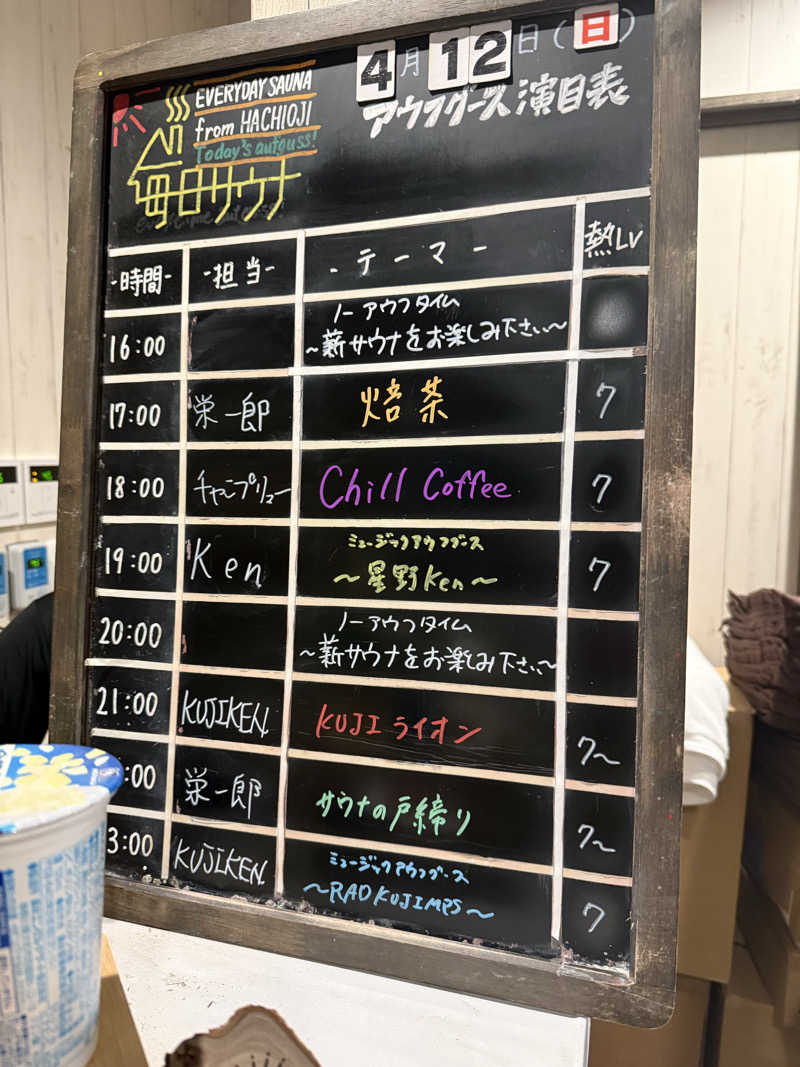 4月12日(日)
アウフグース演目表
EVERYDAY SAUNA
from HACHIOJI
Today's aufguss!
毎日サウナ
-時間- -担当- -テーマ- 熱Lv
16:00 ノーアウフタイム
~薪サウナをお楽しみ下さい~
17:00 栄一郎 焙茶 7
18:00 チャンプリュー Chill Coffee 7
19:00 Ken ミュージックアウフグース
~星野Ken~ 7
20:00 ノーアウフタイム
~薪サウナをお楽しみ下さい~
21:00 KUJIKEN KUJIライオン 7~
:00 栄一郎 サウナの戸締り 7~
3:00 KUJIKEN ミュージックアウフグース
~RADKUJIMPS~ 7